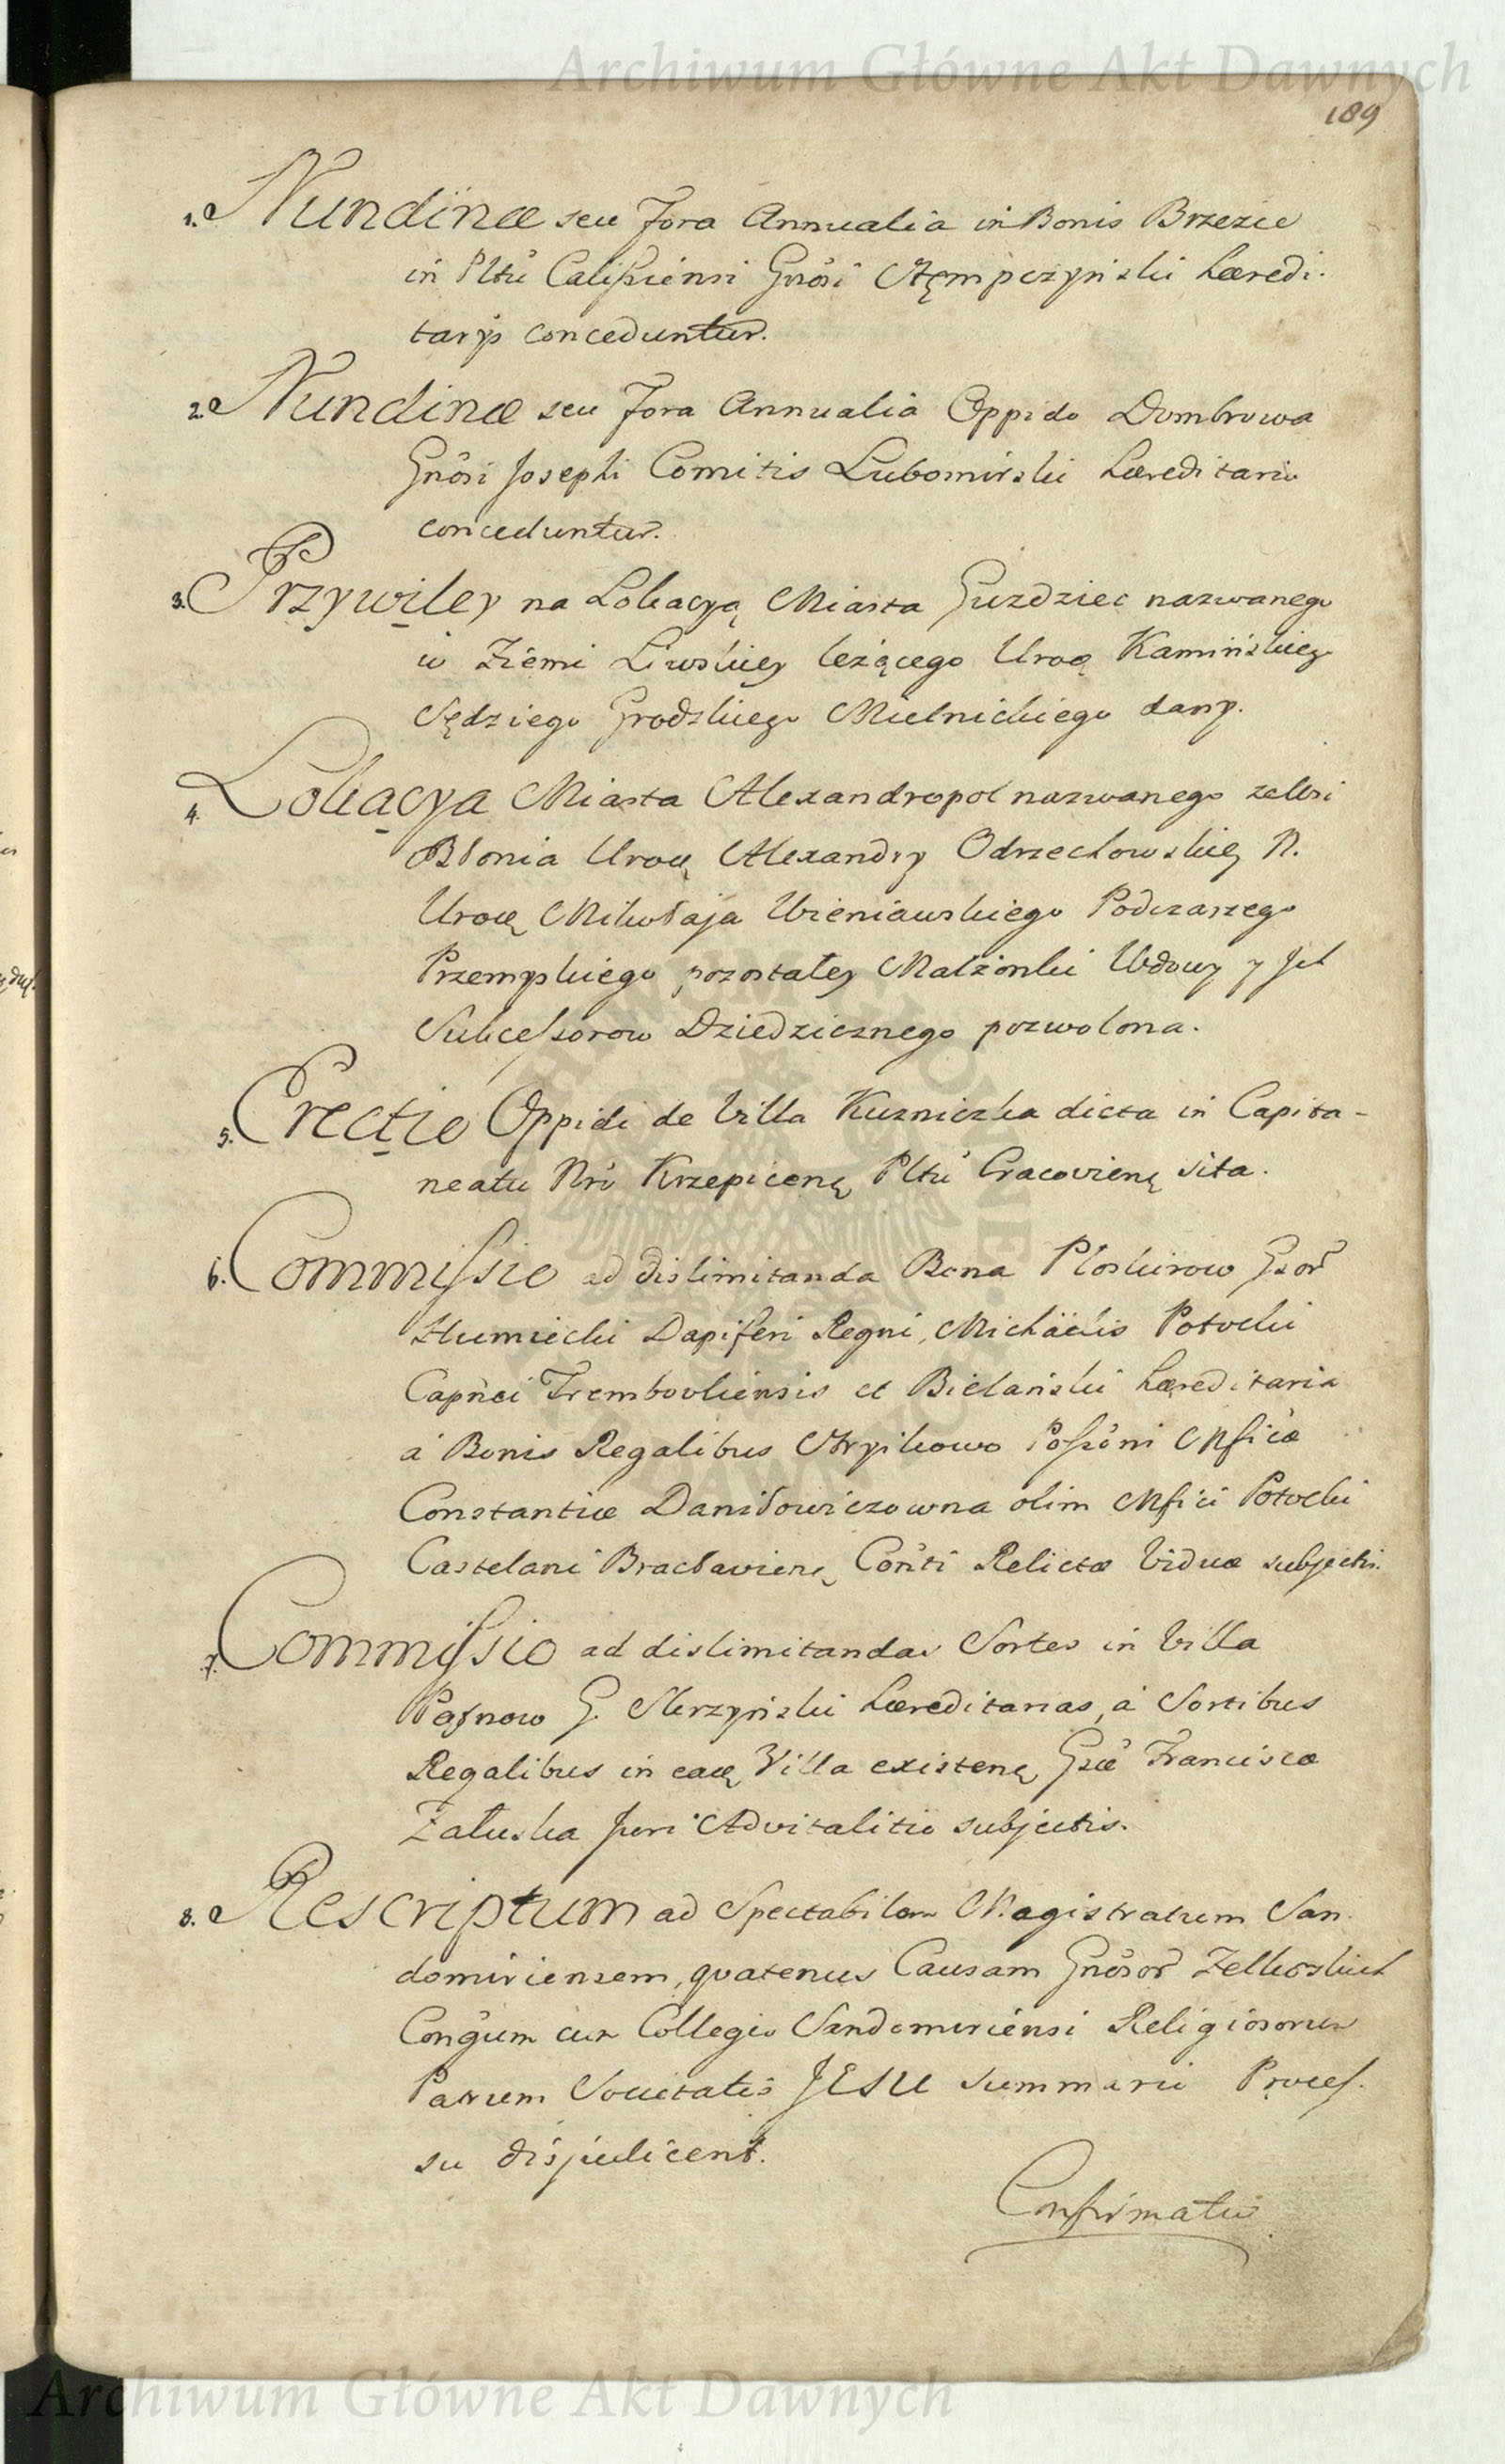 Archiwum Główne Akt Dawnych
189
1. Nundinæ seu Fora Annualia in Bonis Brzezie
in Pltũ Calissiensi Gnõsi Stęmpczynski hæredi-
tarijs conceduntur.
2. Nundinæ seu Fora Annualia Oppido Dombrowa
Gnõsi Josephi Comitis Lubomirski hæreditario
conceduntur.
3. Przywiley na Lokacyą Miasta Guzdziec nazwanego
w Ziemi Liwskiey leżącego Uroą Kamińskieg
Sędziego Grodzkiego Mielnickiego dany.
4. Lokacya Miasta Alexandropol nazwanego ze Wsi
Błonia Uroę Alexandry Odrzechowskię N.
Uroę Mikołaja Wieniawskiego Podczaszego
Przemyskiego pozostałey Małżonki Wdowy y Jch
Sukcessorow Dziedzicznego pozwolona.
5. Erectio Oppidi de Villa Kuzniczka dicta in Capita-
neatu Nrõ Krzepicenę Pltũ Cracovienę sita.
6. Commissio ad dislimitanda Bona Ploskirow Gsor
Humiecki Dapiferi Regni, Michäelis Potocki
Capnei Trembowliensis et Bielański hæreditaria
à Bonis Regalibus Stryikowo Possõni Mficæ
Constantiæ Daniłowiczowna olim Mfici Potocki
Castelani Bracłavienę Conti Relictæ Viduæ subjectis.
7. Commissio ad dislimitandas Sortes in Villa
Pąsnow G. Skrzyński hæreditarias, à Sortibus
Regalibus in eadę Villa existenę Gsæ Franciscæ
Załuska Juri Advitalitio subjectis.
8. Rescriptum ad Spectabilem Magistratum San-
domiriensem, quatenus Causam Gnõsor Zelkowskich
Conğum cum Collegio Sandomiriensi Religiosorum
Patrum Societatis JESU summario Proces-
su disjudicent.
Confirmatio
Archiwum Główne Akt Dawnych